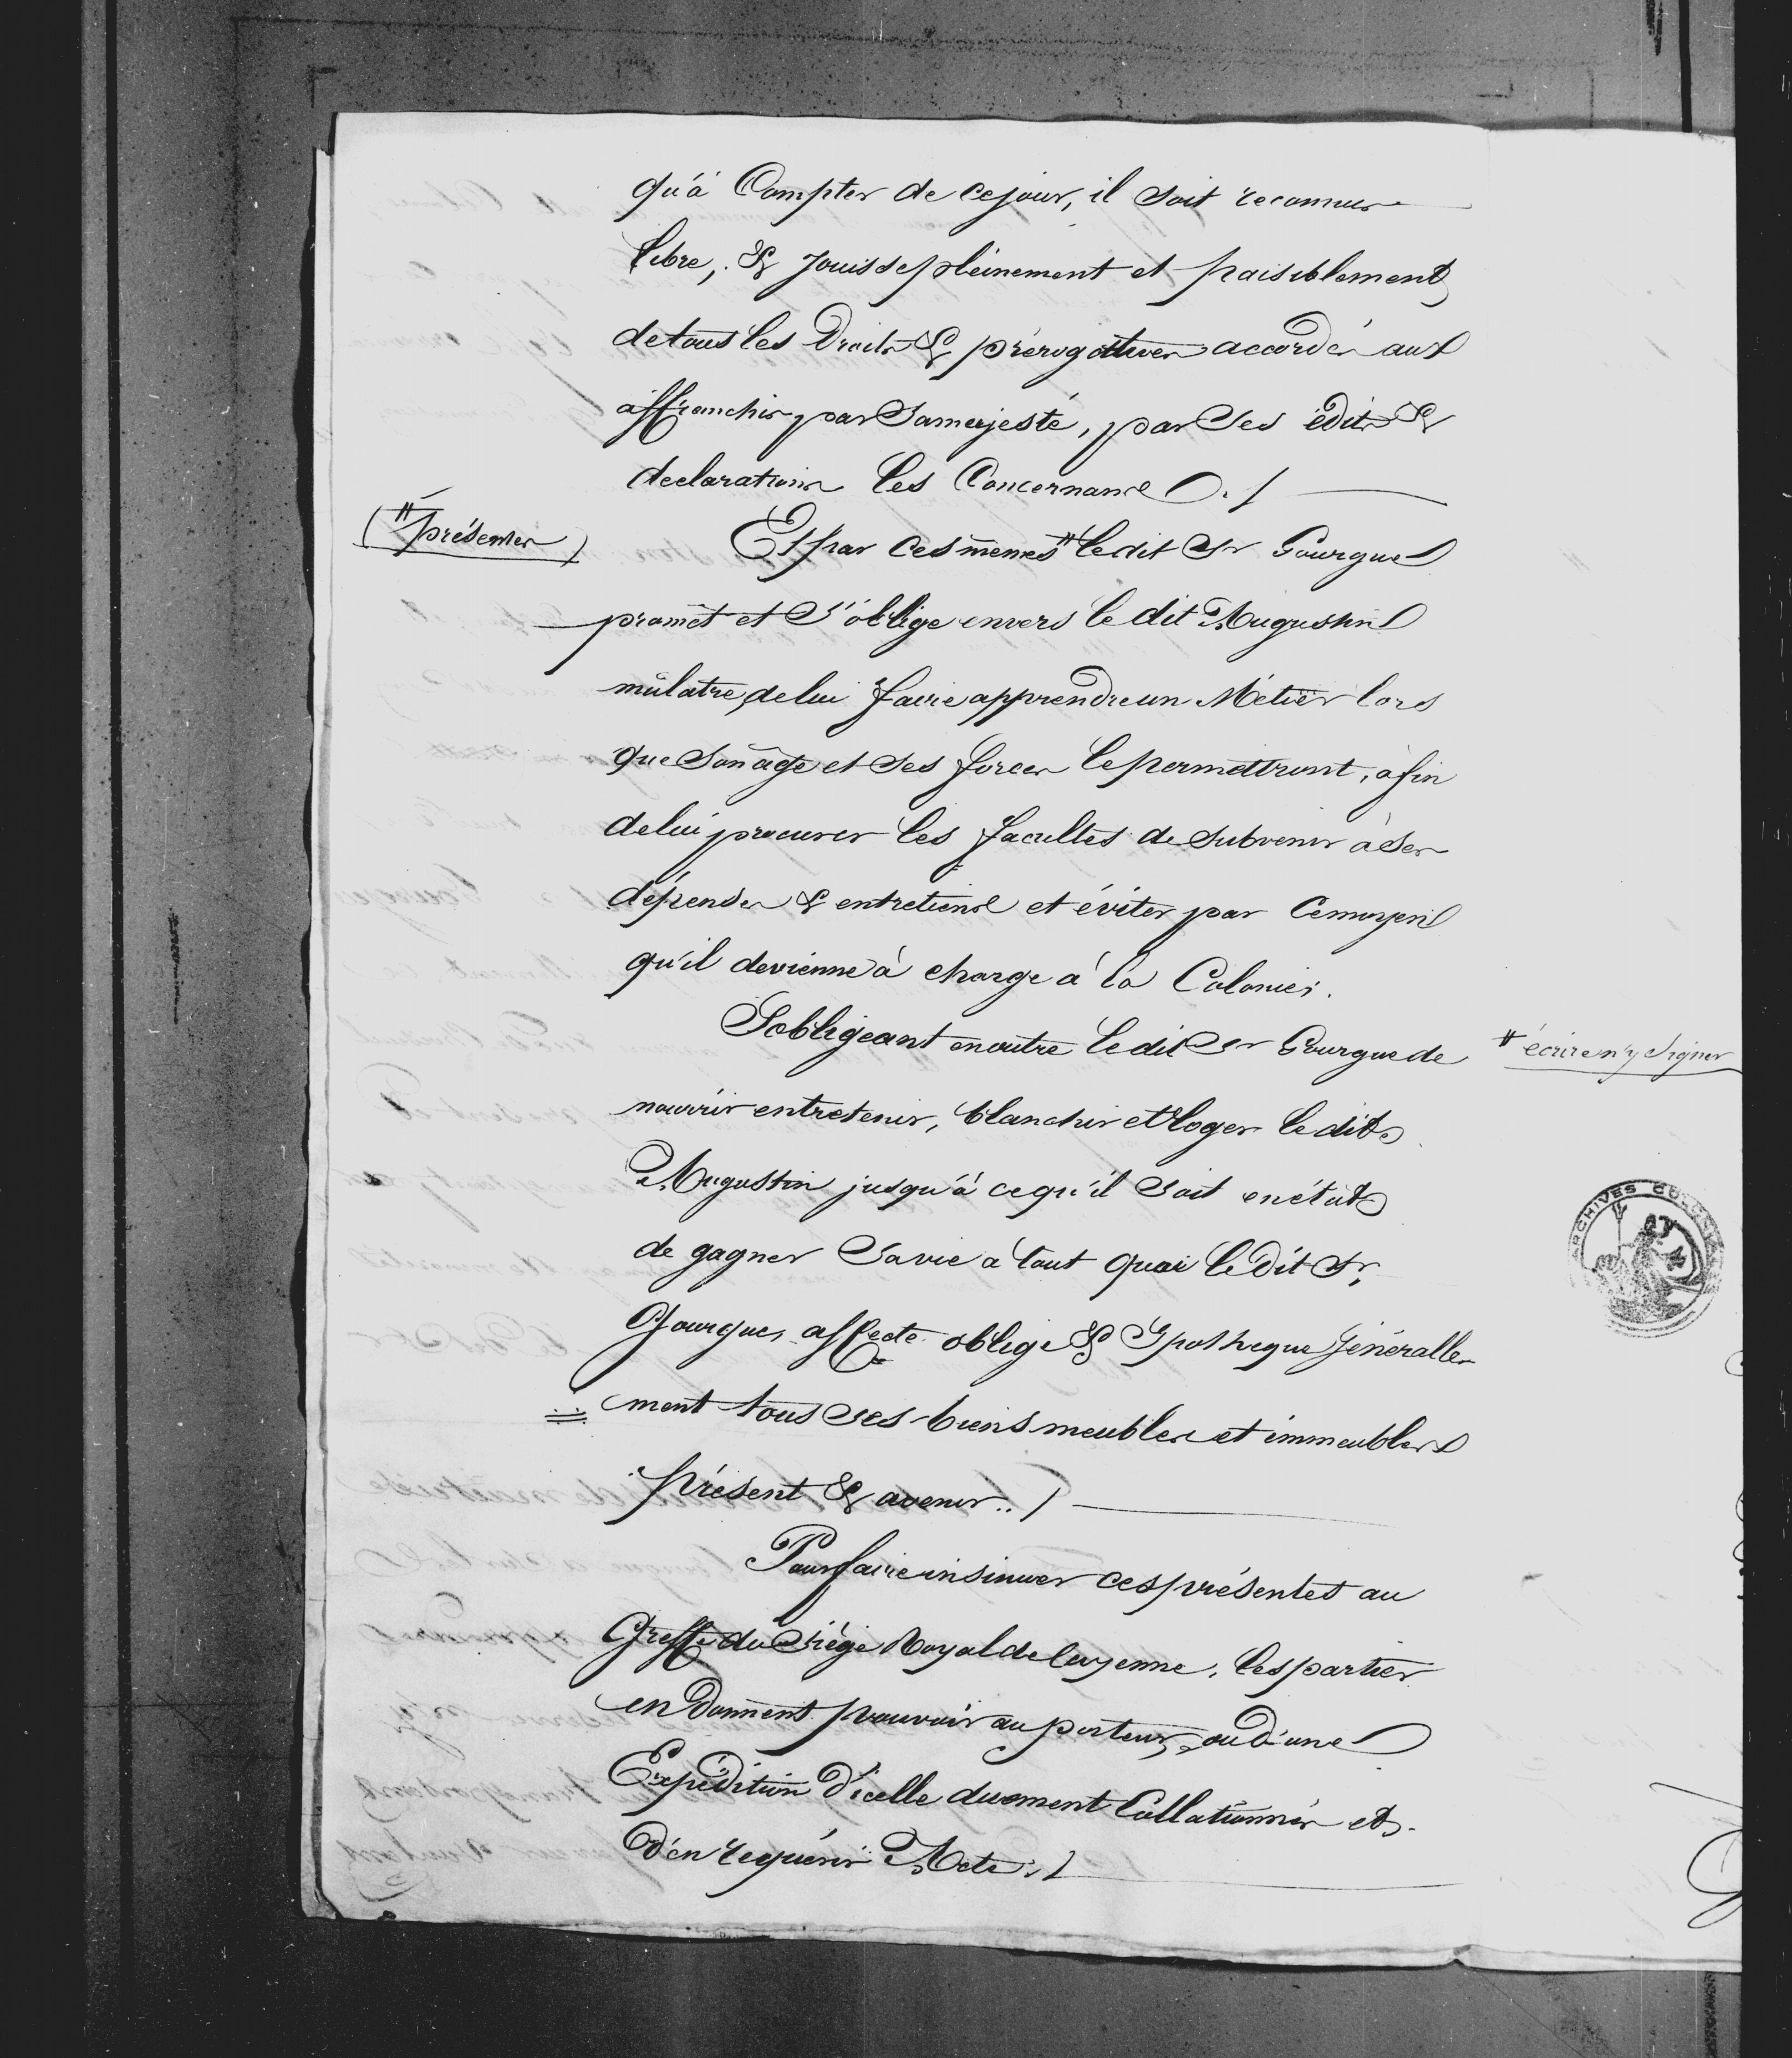 qu'à Compter de ce jour, il soit reconnu
libre, & Jouisse pleinement et paisiblement
de tous les Droits & prérogatives accordés aux
affranchis par Sa majesté, par Ses édits &
declarations les Concernans ./
(# présentes)
Et par ces mêmes # ledit Sr Gourgue
promêt et S'oblige envers le dit Augustin
mulatre, de lui faire apprendre un Métier lors
que Son âge et Ses forces le permettront, afin
de lui procurer les facultés de Subvenir à Ses
dépenses & entretiens et éviter par Ce moyen
qu'il devienne à charge à la Colonie.
S'obligeant en outre le dit Sr Gourgue de
nourrir entretenir, blanchir et loger le dit
Augustin jusqu'à ce qu'il Soit en état
de gagner Sa vie a tout quoi le Dit Sr,
Gourgue, affecte oblige & Ypotheque Généralle
ment tous ses biens meubles et immeubles
présent & avenir ./
Pour faire insinuer ces présentes au
Greffe du Siège Royal de Cayenne, les parties
en Donnent pouvoir au porteur, ou d'une
Expédition d'icelle duement Collationnés et
D'en requérir Acte ./
# écrire n'y Signer
ARCHIVES COLONIALES